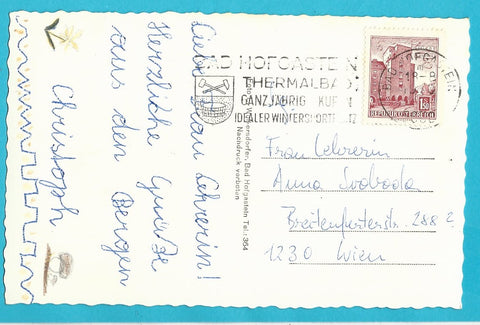 Liebe Frau Lehrerin!
Herzliche Grüße
aus den Bergen
Christoph
BAD HOFGASTEIN
THERMALBAD
GANZJÄHRIG KUREN
IDEALER WINTERSPORTPLATZ
BAD HOFGASTEIN
REPUBLIK ÖSTERREICH
Bad Hofgastein Tel.: 364
Nachdruck verboten
Frau Lehrerin
Anna Svoboda
Breitenfurterstr. 288
1230 Wien